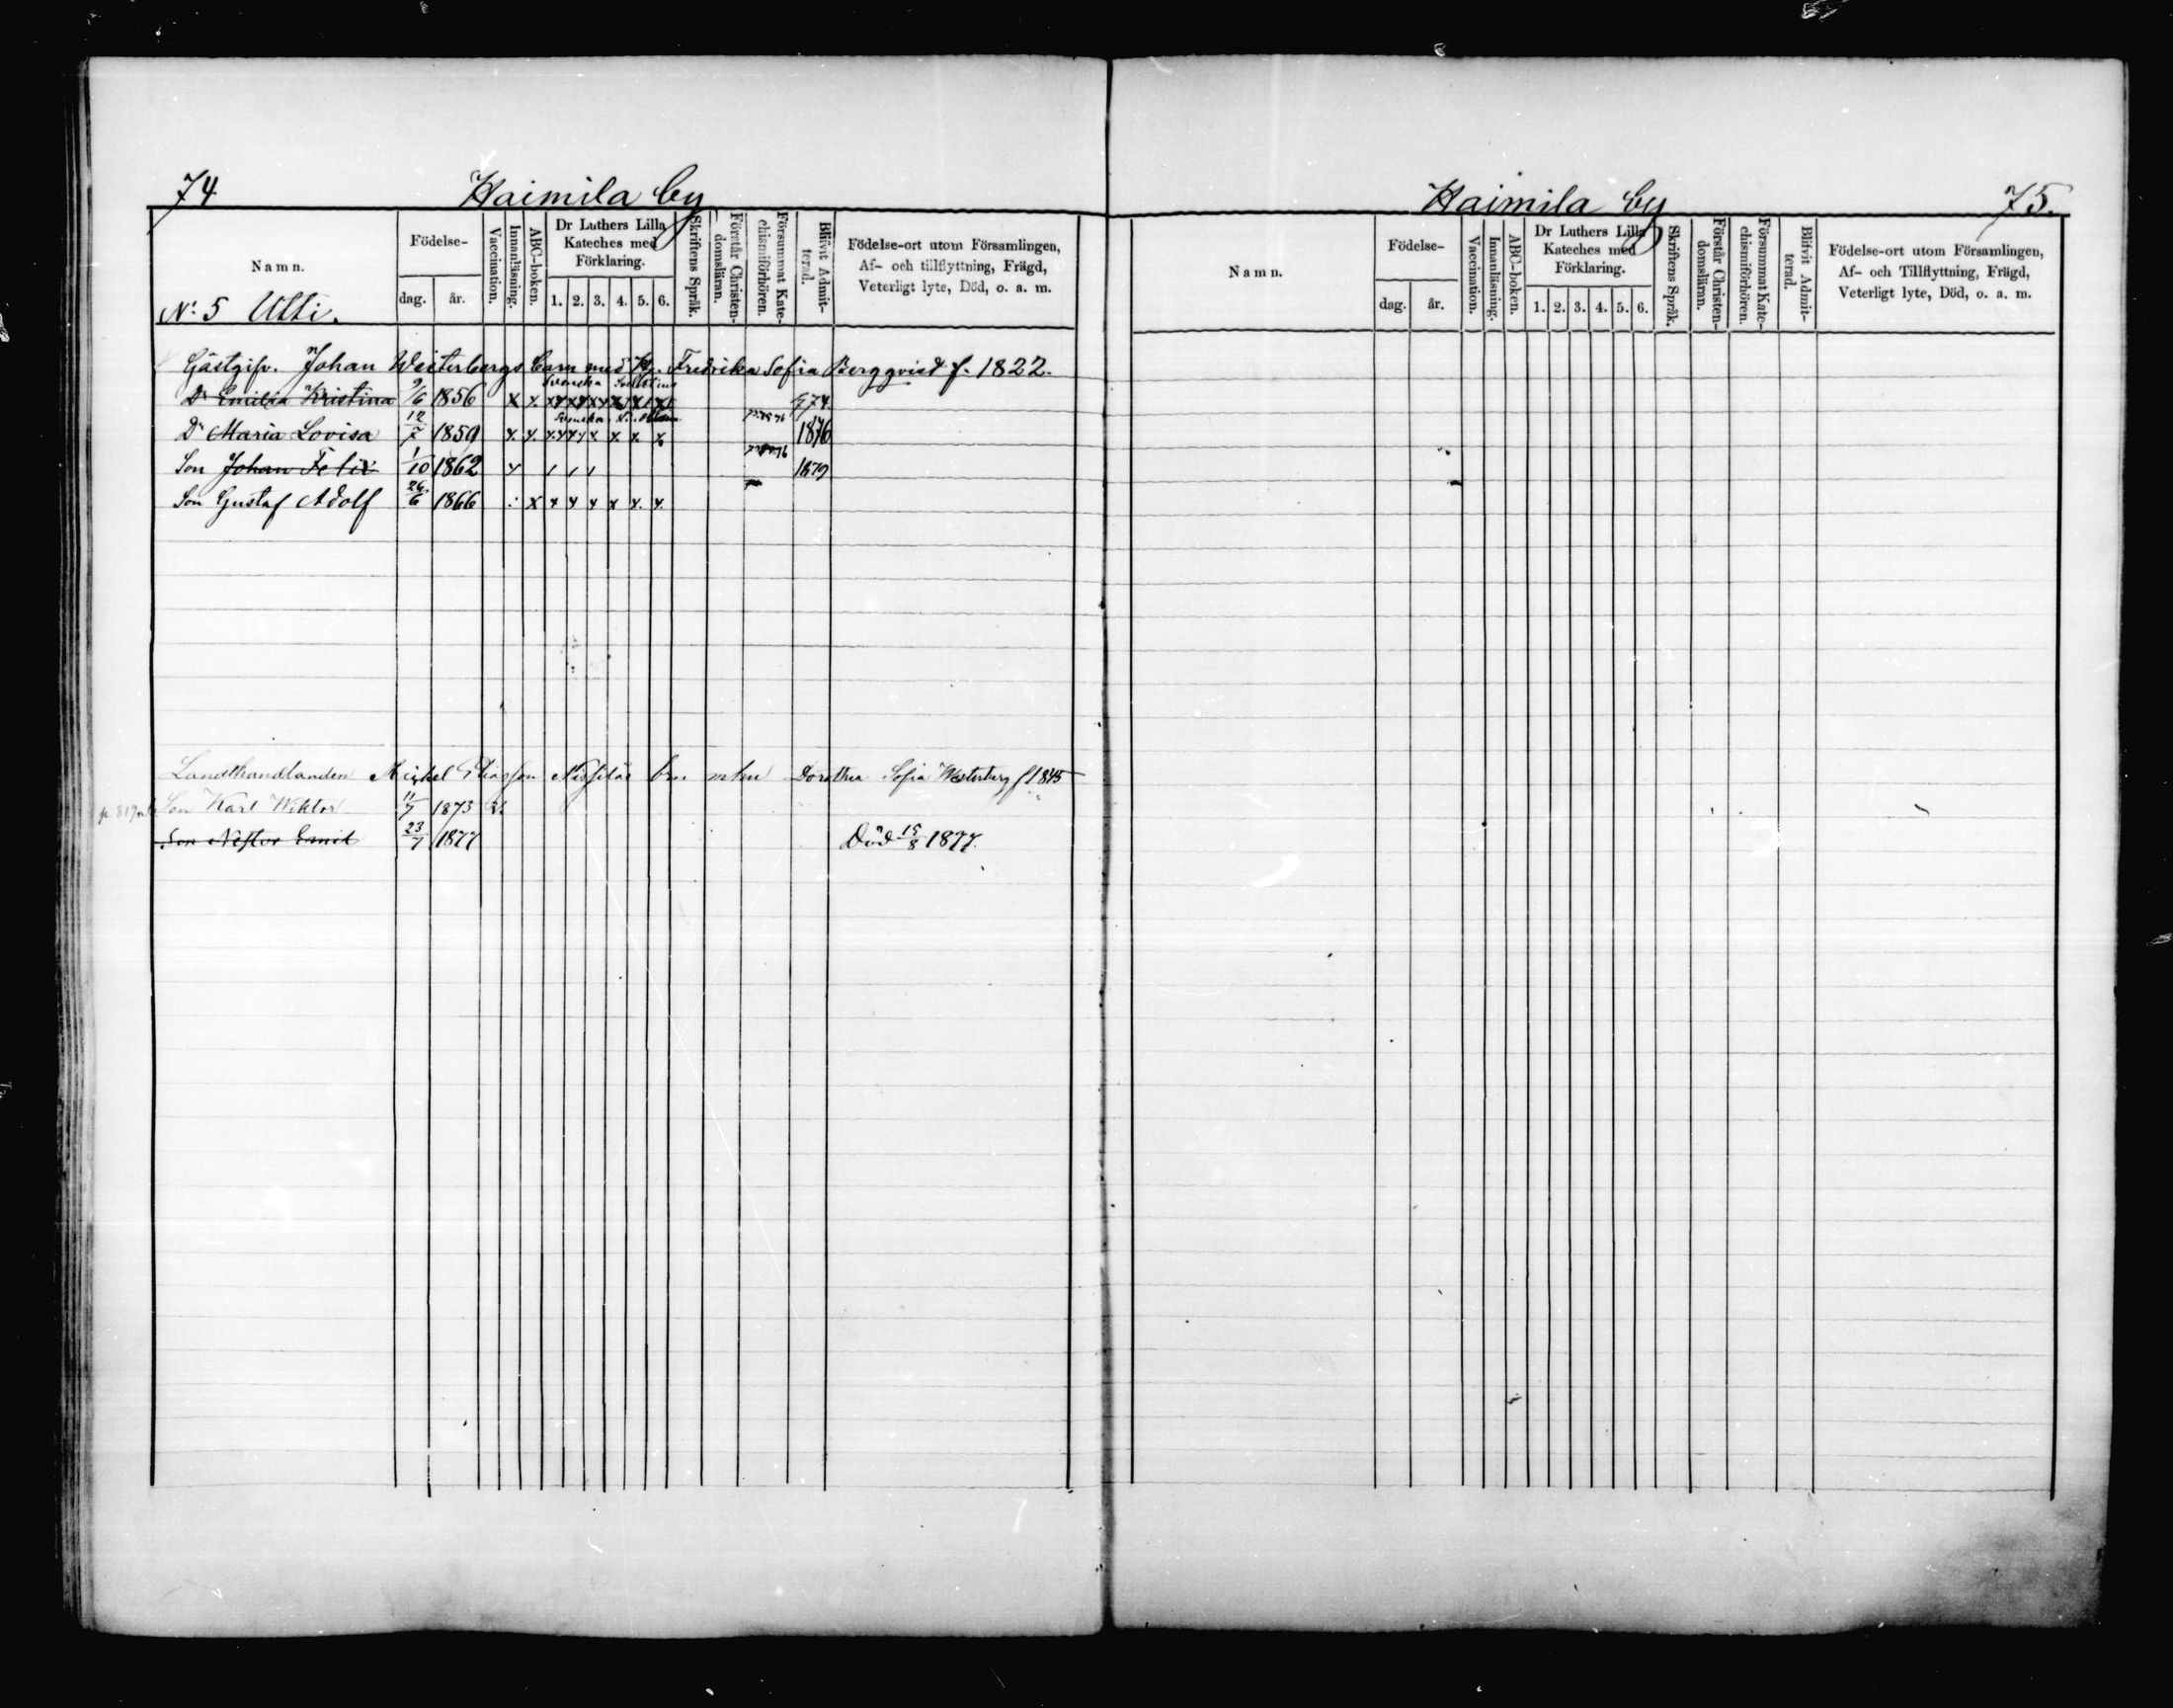 74 Kaimila by
Namn.
Födelse-
dag. år.
Vaccination.
Innanläsning.
ABC-boken.
Dr Luthers Lilla
Kateches med
Förklaring.
1. 2. 3. 4. 5. 6.
Skriftens Språk.
Förstår Christen-
domsläran.
Försummat Kate-
chismiförhören.
Blifvit Admit-
terad.
Födelse-ort utom Församlingen,
Af- och tillflyttning, Frägd,
Veterligt lyte, Död, o. a. m.
No: 5 Utti.
Gästgifv. Johan Westerbergs barn med Fredrika Sofia Bergqvist f. 1822.
Svenska
Dr Emilia Kristina 9/6 1856 x x. 74.
Svenska
Dr Maria Lovisa 12/7 1859 x. x. x. x. x. x 1876
Son Johan Felix 1/10 1862 x 1879
Son Gustaf Adolf 26/6 1866 x x x x x x. x.
Landthandlanden Mickel Dorothea Sofia Westerberg f 1845
Son Karl Wiktor 11/7 1873
Son Nestor Emil 23/7 1877 Död 15/8 1877.
Kaimila by 75.
Namn.
Födelse-
dag. år.
Vaccination.
Innanläsning.
ABC-boken.
Dr Luthers Lilla
Kateches med
Förklaring.
1. 2. 3. 4. 5. 6.
Skriftens Språk.
Förstår Christen-
domsläran.
Försummat Kate-
chismiförhören.
Blifvit Admit-
terad.
Födelse-ort utom Församlingen,
Af- och Tillflyttning, Frägd,
Veterligt lyte, Död, o. a. m.